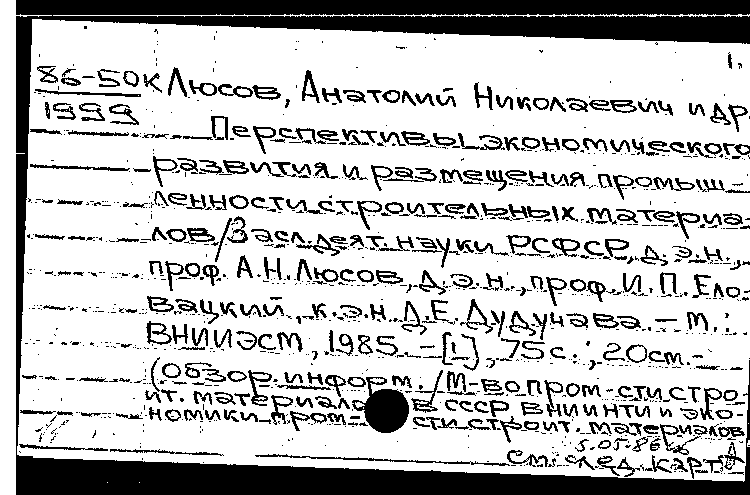 1.
86-50к Люсов, Анатолий Николаевич и др.
1999
Перспективы экономического
развития и размещения промыш-
ленности строительных материа-
лов/Засл. деят. науки РСФСР, д.э.н.,
проф. А.Н.Люсов, д.э.н., проф. И.П. Ело-
вацкий, к.э.н. Д.Е. Дудучава. – М.:
ВНИИЭСМ, 1985. – [1], 75с.; 20см.–
(Обзор. информ. /М-во пром-сти стро-
ит. материалов СССР ВНИИНТИ и эко-
номики пром-сти строит. материалов
5.05.86
см. след. карт